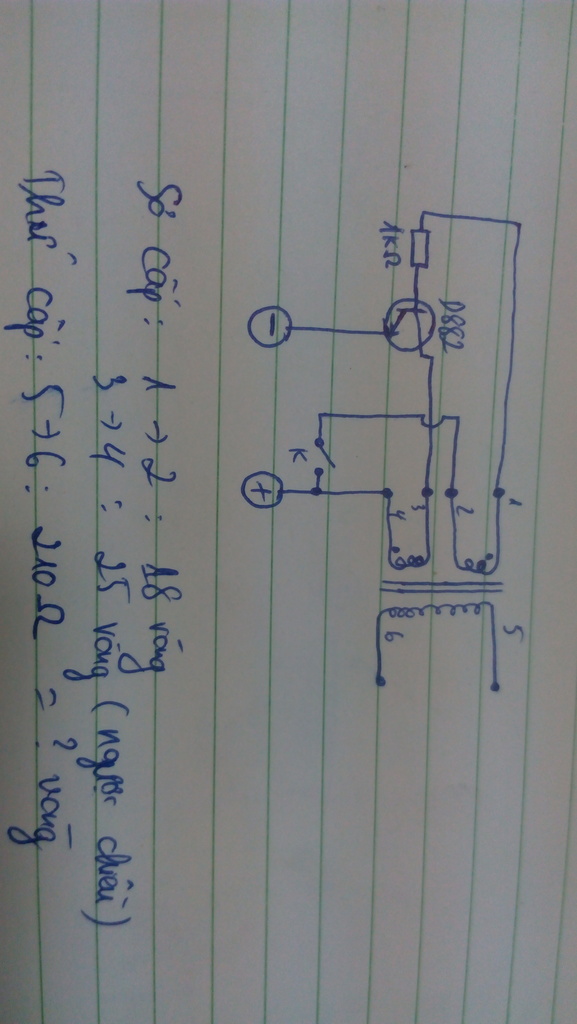 1KΩ
D882
K
-
+
1
2
3
4
5
6
Sơ cấp: 1 → 2 : 18 vòng
3 → 4 : 25 vòng (ngược chiều)
Thứ cấp: 5 → 6 : 210Ω = ? vòng